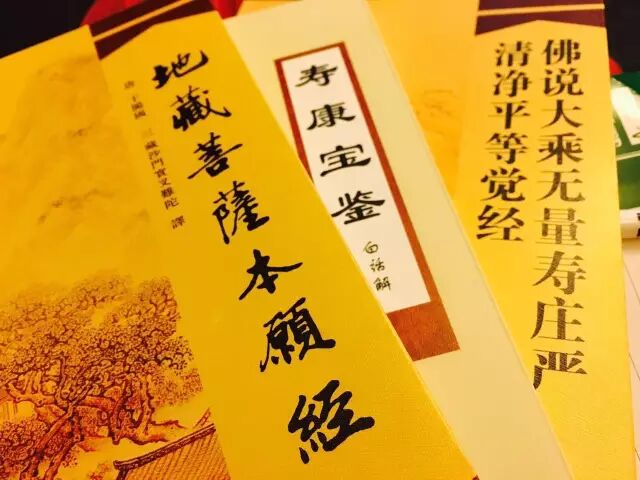 地藏菩薩本願經
唐 于闐國 三藏沙門實叉難陀 譯
寿康宝鉴
白话解
佛说大乘无量寿庄严
清净平等觉经